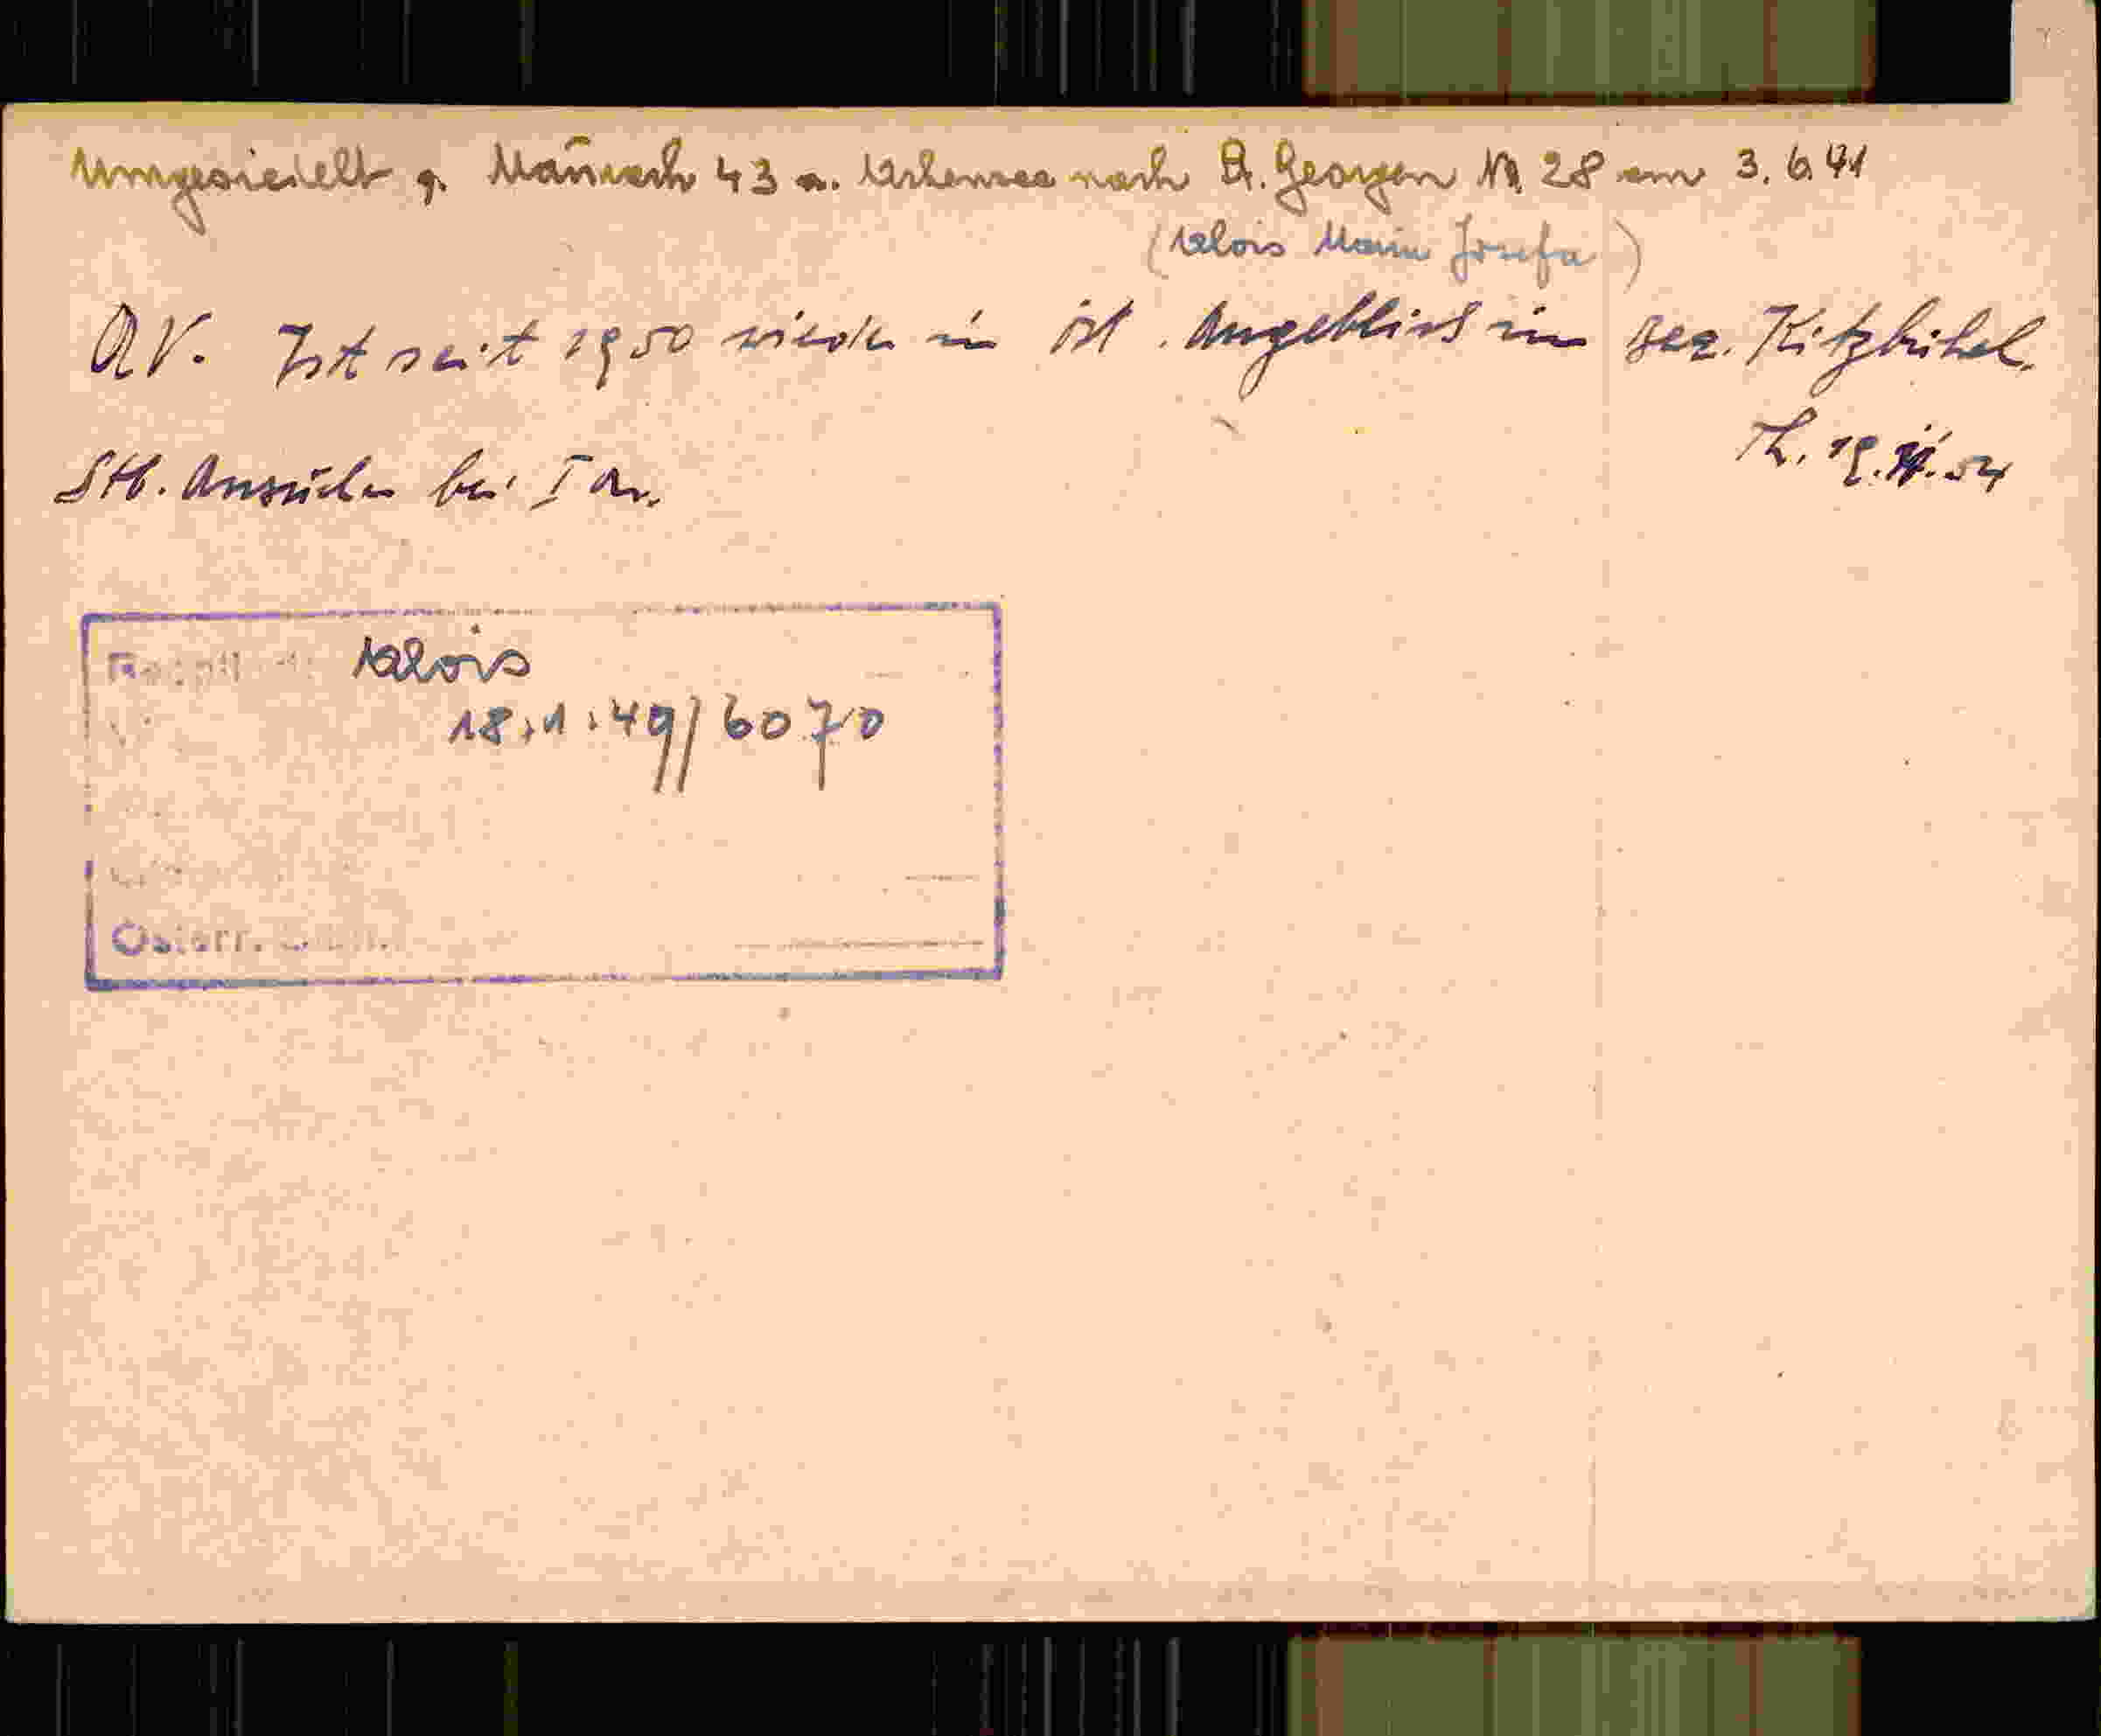 Umgesiedelt g. Maurach 43 a. Achensee nach St. Georgen No 28 am 3.6.41
(Alois Maria Josefa)
AV. Ist seit 1950 wieder in Öst. Angeblich im Bez. Kitzbühel.
Stb. Ansuchen bei I
Th. 19. 54
Alois
18.1.49/6070
Österr.